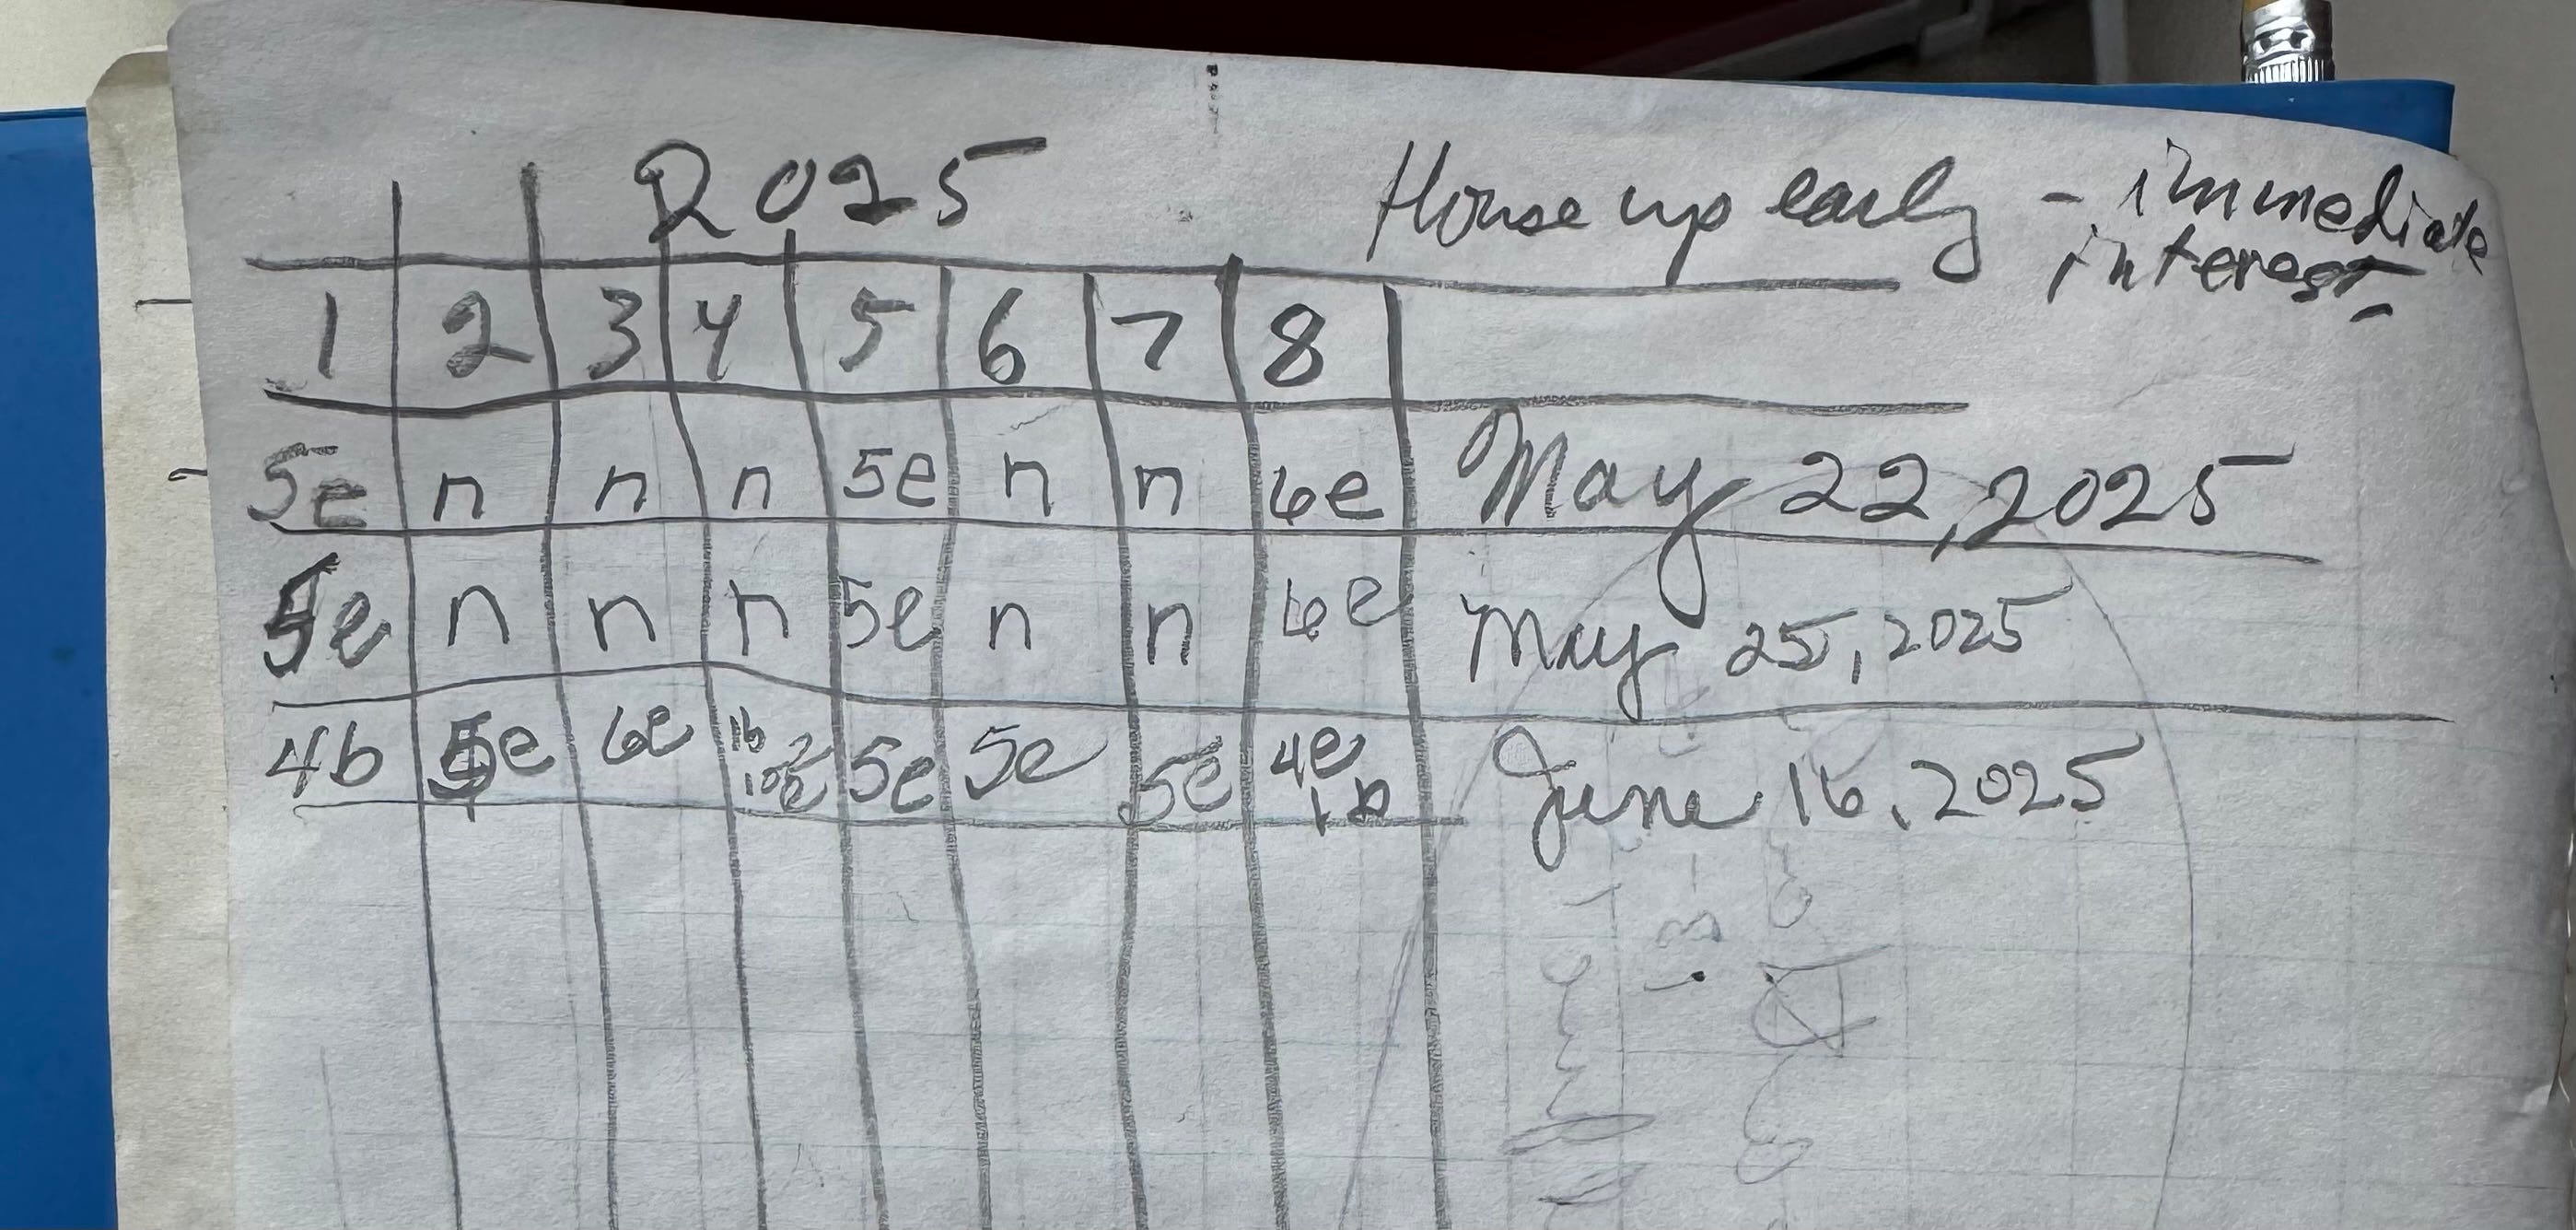 2025 House up early - immediate
interest
1 2 3 4 5 6 7 8
5e n n n 5e n n 6e May 22, 2025
5e n n n 5e n n 6e May 25, 2025
4b 5e 6e 1b 5e 5e 5e 4e June 16, 2025
1b